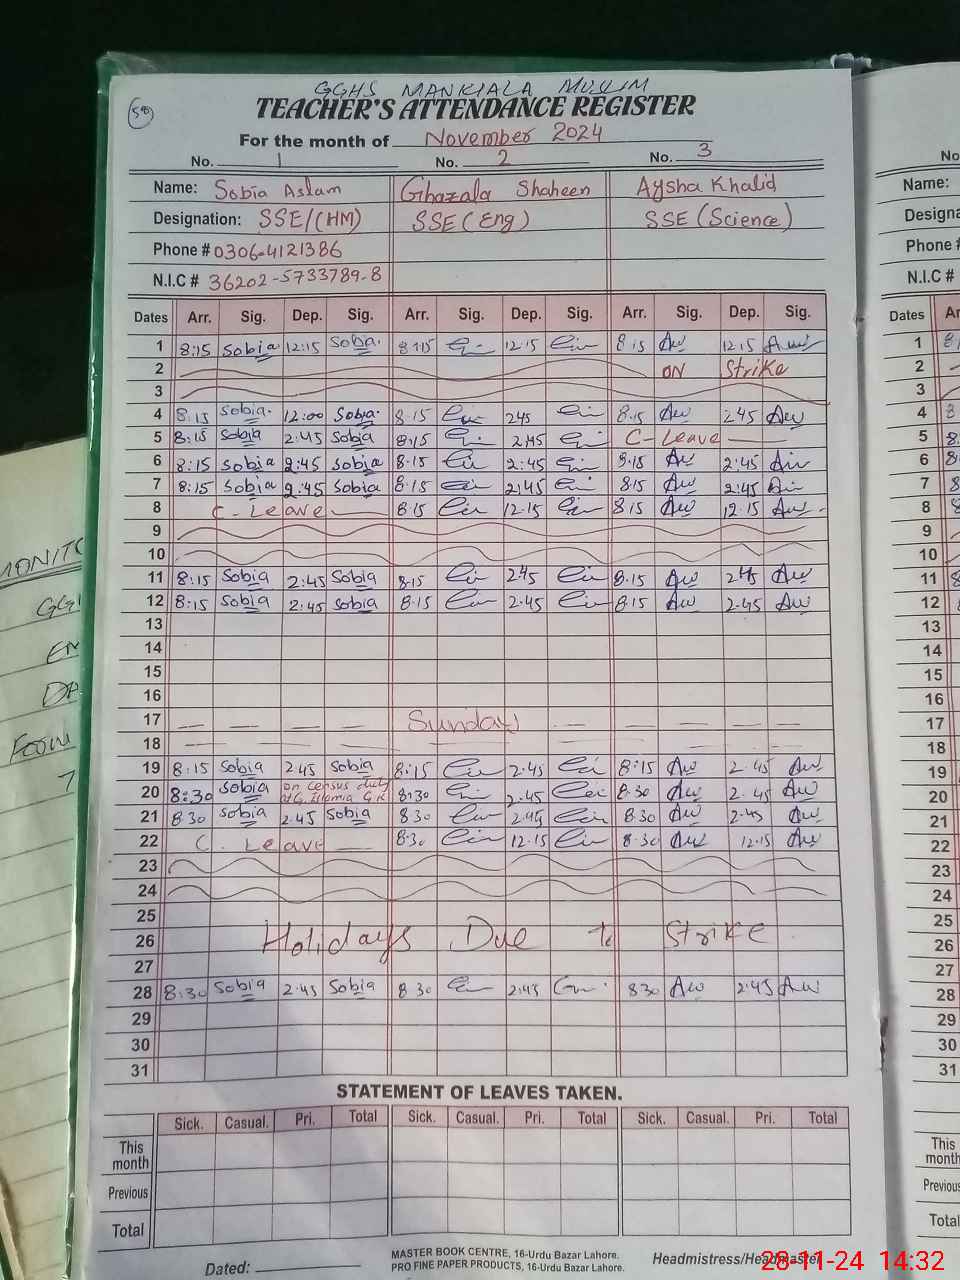 GGHS MANKIALA MUSLIM
58
TEACHER'S ATTENDANCE REGISTER
For the month of November 2024
No. 1 No. 2 No. 3
Name: Sobia Aslam Ghazala Shaheen Aysha Khalid
Designation: SSE/(HM) SSE (Eng) SSE (Science)
Phone # 0306-4121386
N.I.C # 36202-5733789-8
Dates Arr. Sig. Dep. Sig. Arr. Sig. Dep. Sig. Arr. Sig. Dep. Sig.
1 8:15 Sobia 12:15 Sobia 8:15 12:15 8:15 12:15
2 ON Strike
3
4 8:15 Sobia 12:00 Sobia 8:15 2:45 8:15 2:45
5 8:15 Sobia 2:45 Sobia 8:15 2:45 C-Leave
6 8:15 Sobia 2:45 Sobia 8:15 2:45 8:15 2:45
7 8:15 Sobia 2:45 Sobia 8:15 2:45 8:15 2:45
8 C-Leave 8:15 12:15 8:15 12:15
9
10
11 8:15 Sobia 2:45 Sobia 8:15 2:45 8:15 2:45
12 8:15 Sobia 2:45 Sobia 8:15 2:45 8:15 2:45
13
14
15
16
17 Sunday
18
19 8:15 Sobia 2:45 Sobia 8:15 2:45 8:15 2:45
20 8:30 Sobia on census duty at G. Islamia G.K 8:30 2:45 8:30 2:45
21 8:30 Sobia 2:45 Sobia 8:30 2:45 8:30 2:45
22 C. Leave 8:30 12:15 8:30 12:15
23
24
25
26 Holidays Due to Strike
27
28 8:30 Sobia 2:45 Sobia 8:30 2:45 8:30 2:45
29
30
31
STATEMENT OF LEAVES TAKEN.
Sick. Casual. Pri. Total Sick. Casual. Pri. Total Sick. Casual. Pri. Total
This month
Previous
Total
Dated:
MASTER BOOK CENTRE, 16-Urdu Bazar Lahore.
PRO FINE PAPER PRODUCTS, 16-Urdu Bazar Lahore.
Headmistress/Headmaster
28-11-24 14:32